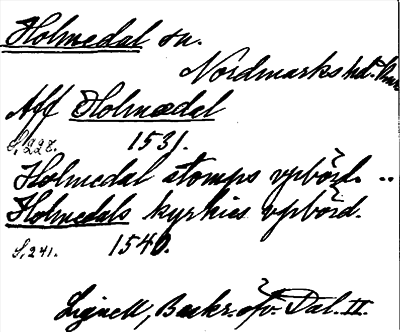 Holmedal sn.
Nordmarks hd.
Aff Holmedal
S. 227. 1531.
Holmedal stomps vpbörd. ..
Holmedals kyrkies vpbörd.
S. 241. 1540.
Lignell, Beskr. öfv. Dal. II.